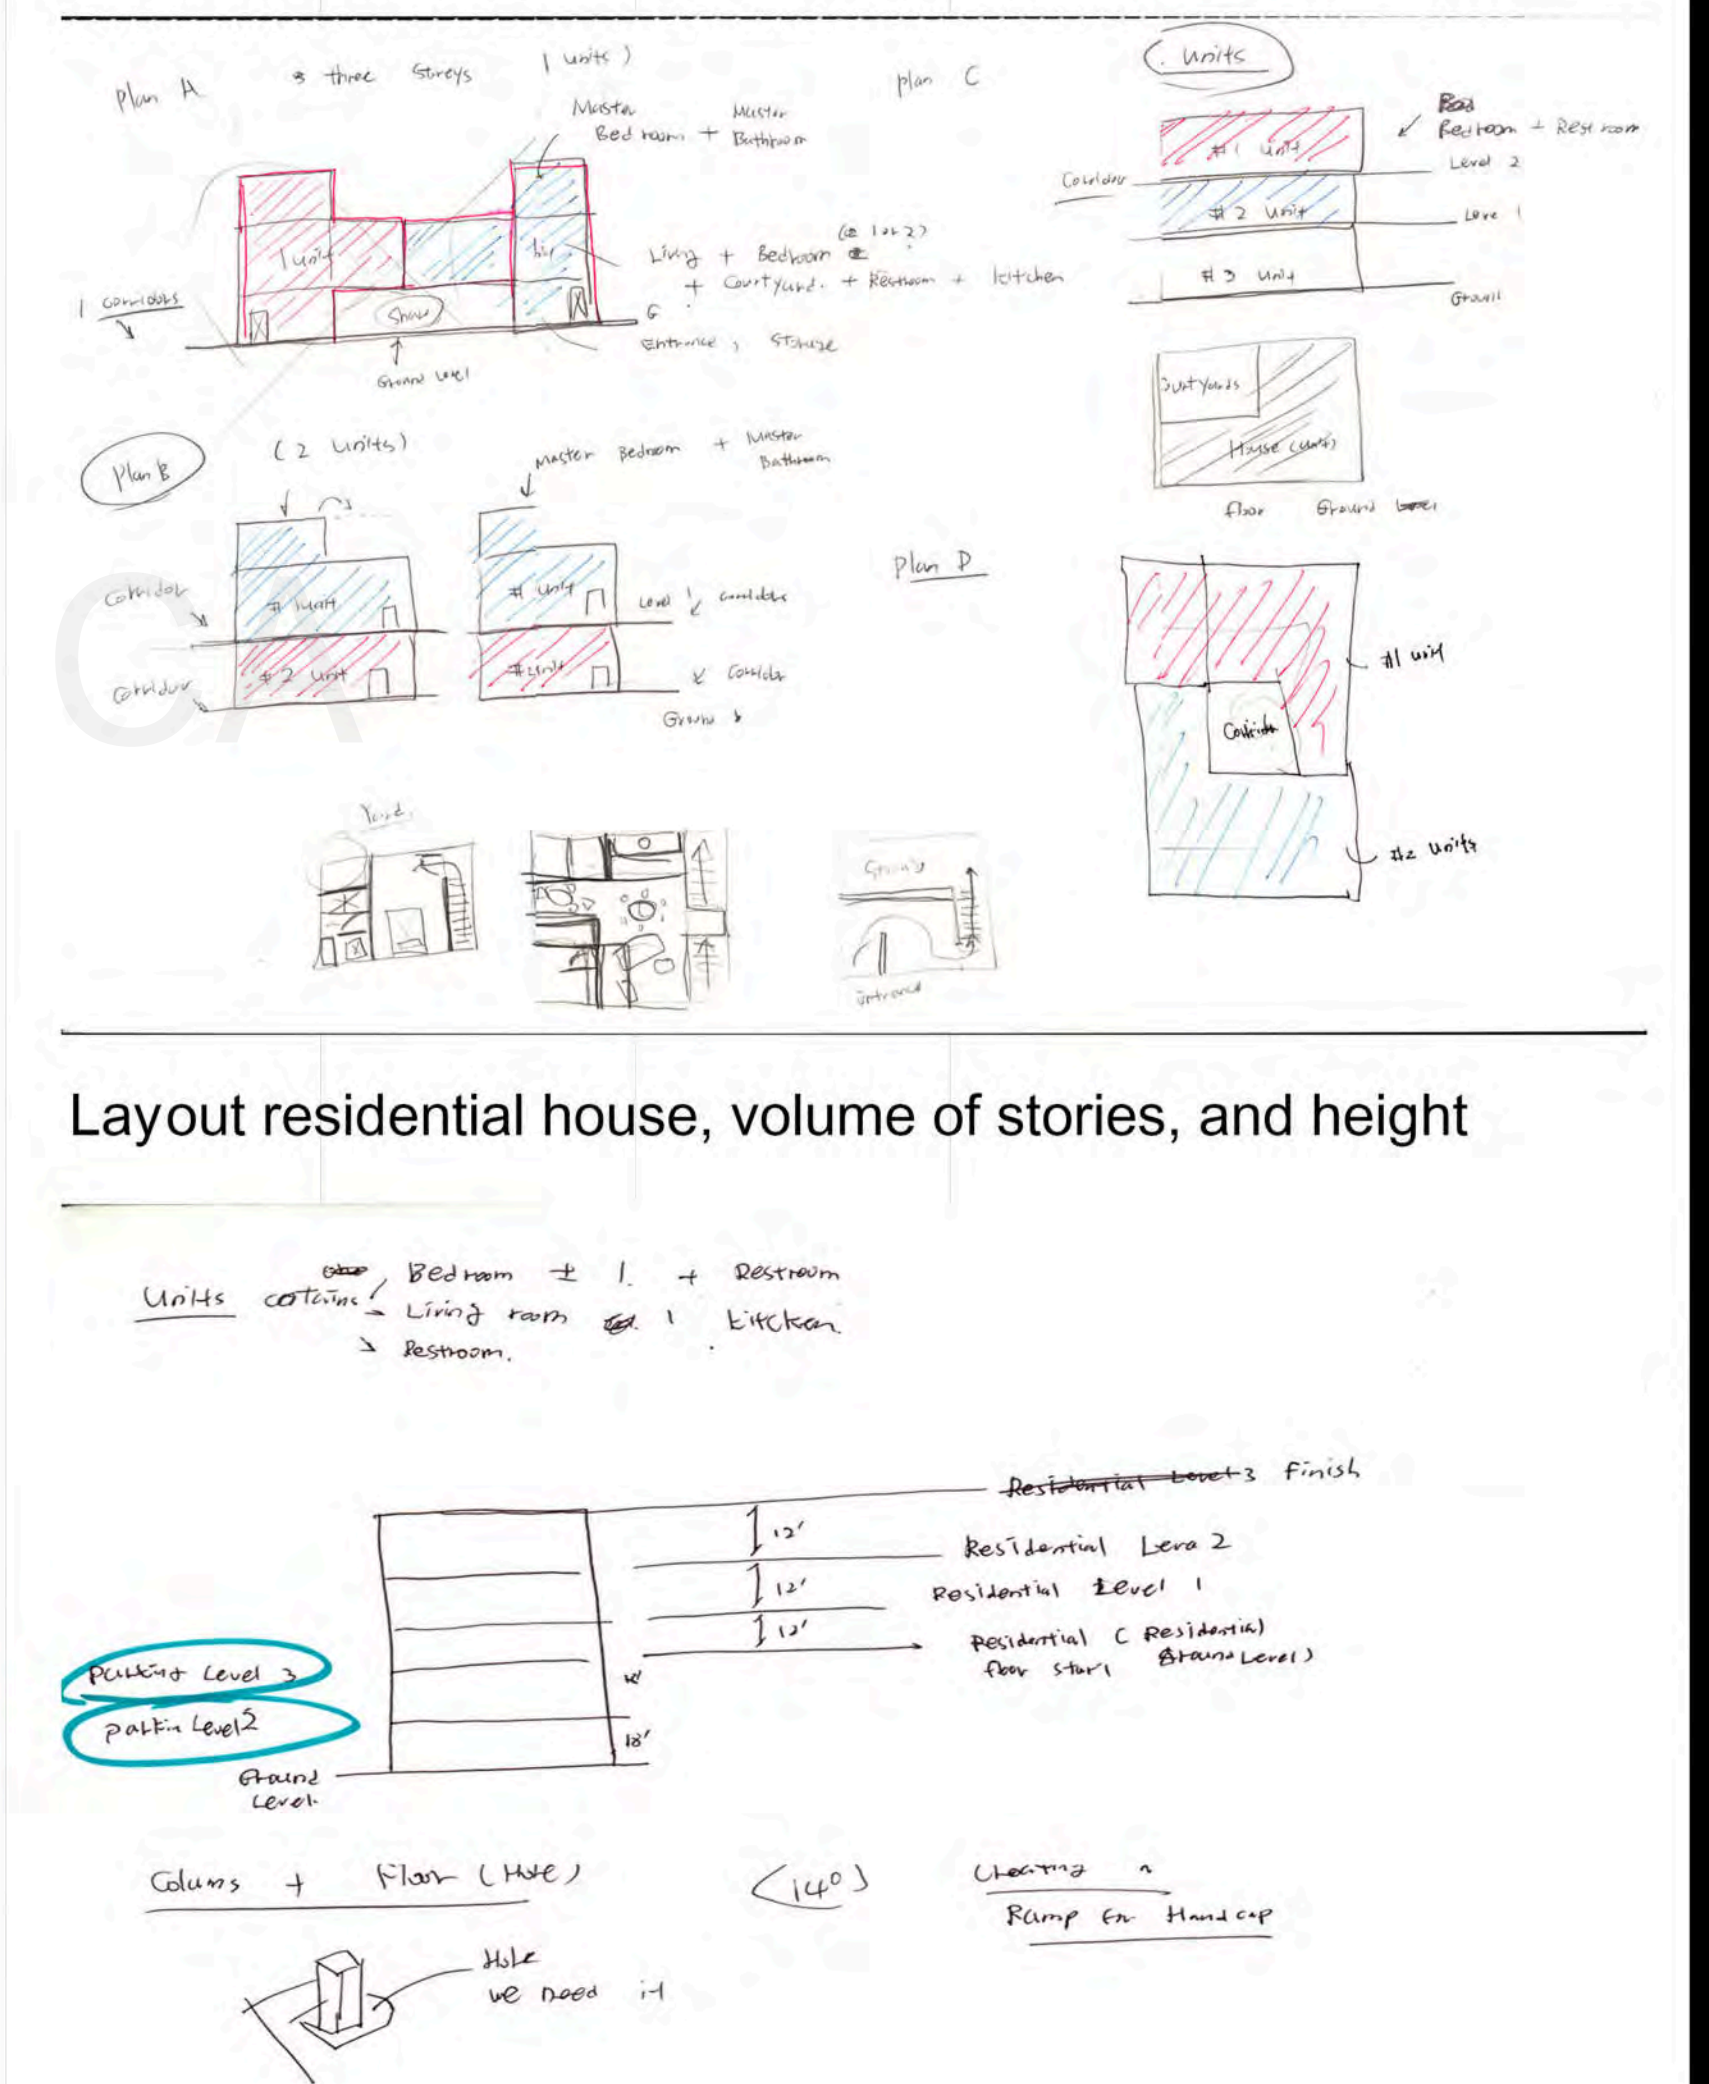 Plan A
three Storeys
1 units)
Master
Bedroom + Master
Bathroom
1 unit
Shaw
1 corridors
Ground Level
Living + Bedroom (1 or 2)
+ Courtyard. + Restroom + kitchen
G
Entrance, Storage
Plan C
Units
Bedroom + Rest room
#1 Unit
Level 2
Corridor
#2 Unit
Leve 1
#3 Unit
Ground
Courtyards
House (unit)
floor Ground
Plan B
(2 Units)
Master Bedroom + Master
Bathroom
Corridor
# 1unit
# unit
Level 1 corridors
Corridor
#2 unit
Corridor
Ground
Plan D
#1 unit
Corridor
#2 units
Yard.
Entrance
CA
Layout residential house, volume of stories, and height
Units
Bedroom ± 1. + Restroom
Living room 1 kitchen.
Restroom.
Residential Level 3 Finish
12'
Residential Leva 2
12'
Residential Level 1
12'
Residential (Residential
floor start Ground Level)
Parking Level 3
Parkin Level 2
18'
Ground
Level.
Colums + Floor (Hole)
(14°)
Creating a
Ramp for Handcap
Hole
we need it